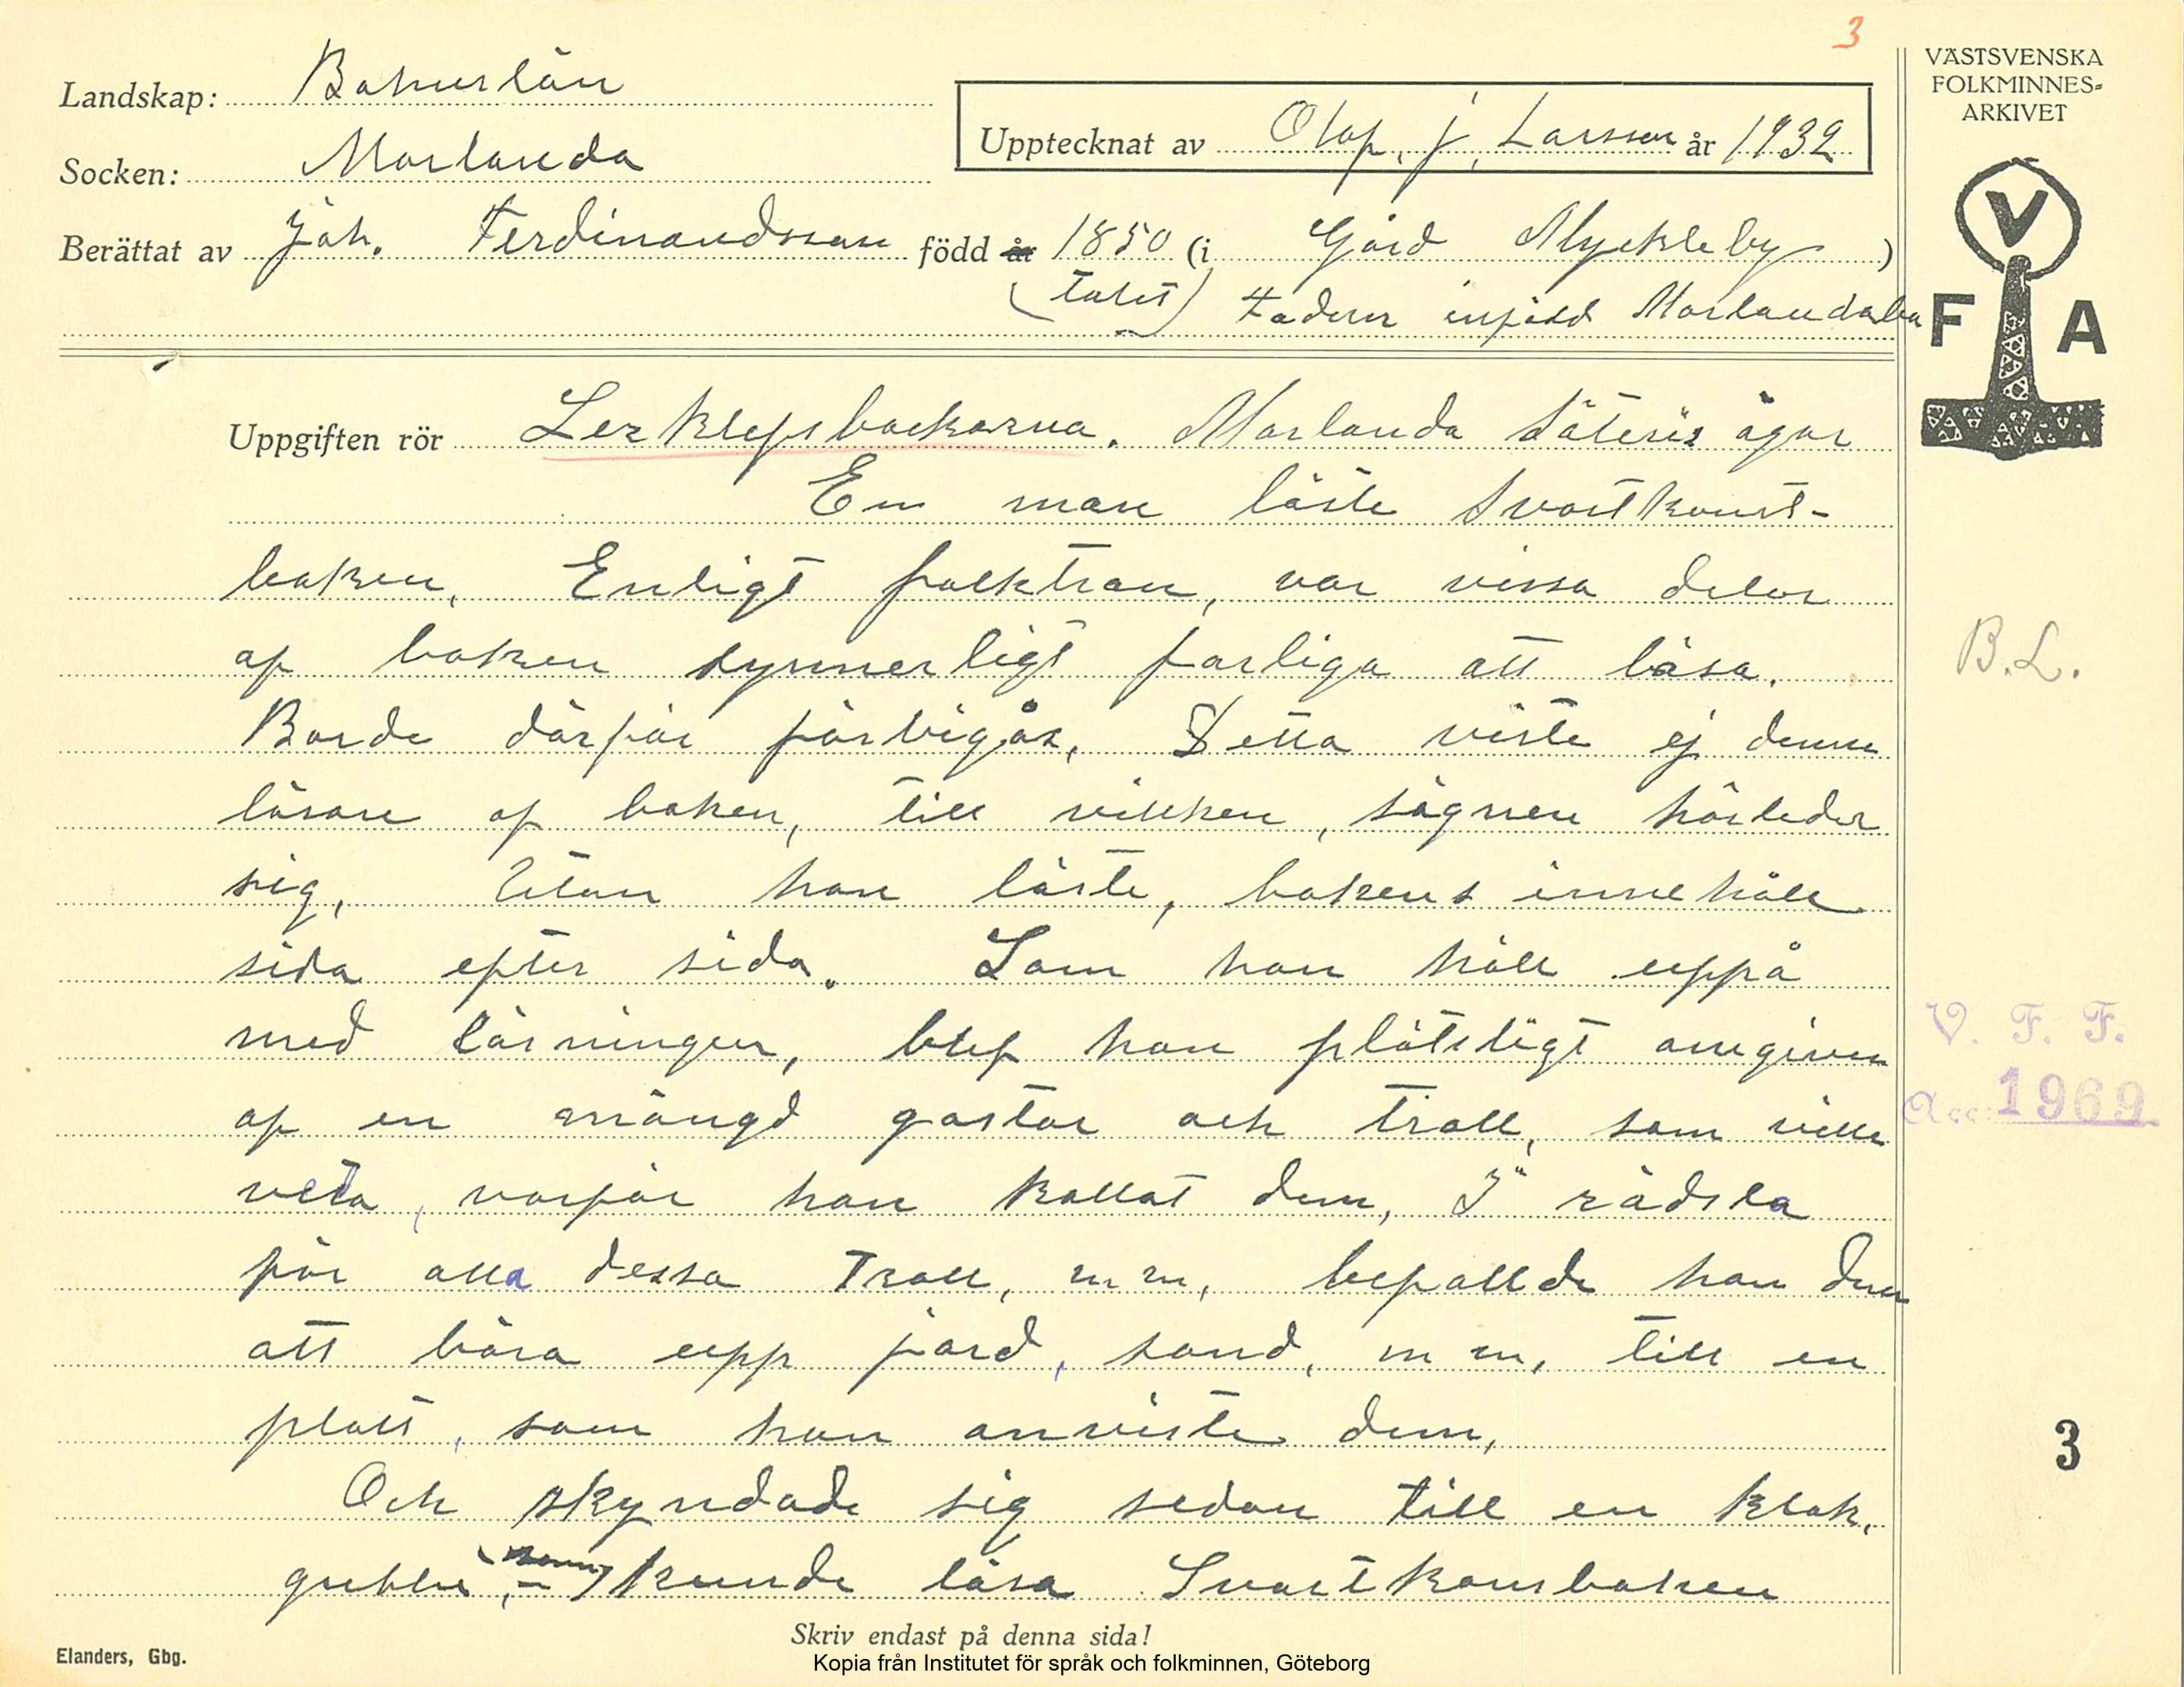 3
VÄSTSVENSKA
FOLKMINNES-
ARKIVET
Landskap: Bohuslän
Upptecknat av Olof. J. Larsson år 1932
Socken: Morlanda
Berättat av Joh. Ferdinandsson född år 1850 (i Gård Myckleby)
(talet) Fadern infödd Morlandabo
V
F A
Uppgiften rör Lerklefsbackarna. Morlanda Säteris ägor
En man läste Svartkonst-
boken. Enligt folktron, var vissa delar
af boken synnerligt farliga att läsa.
Borde därför förbigås. Detta viste ej denne
läsare af boken, till vilken, sägnen härleder
sig, Utan han läste, bokens innehåll
sida efter sida. Som han håll uppå
med läsningen, blef han plötsligt omgiven
af en mängd gastar och troll, som ville
veta, varför han kallat dem, I rädsla
för alla dessa Troll, m m, befallde han dem
att bära upp jord, sand, m m, till en
plats, som han anviste dem,
Och skyndade sig sedan till en klok.
gubbe, som kunde läsa Svartkonsboken
B.L.
V. F. F.
Acc: 1969
3
Skriv endast på denna sida!
Elanders, Gbg.
Kopia från Institutet för språk och folkminnen, Göteborg